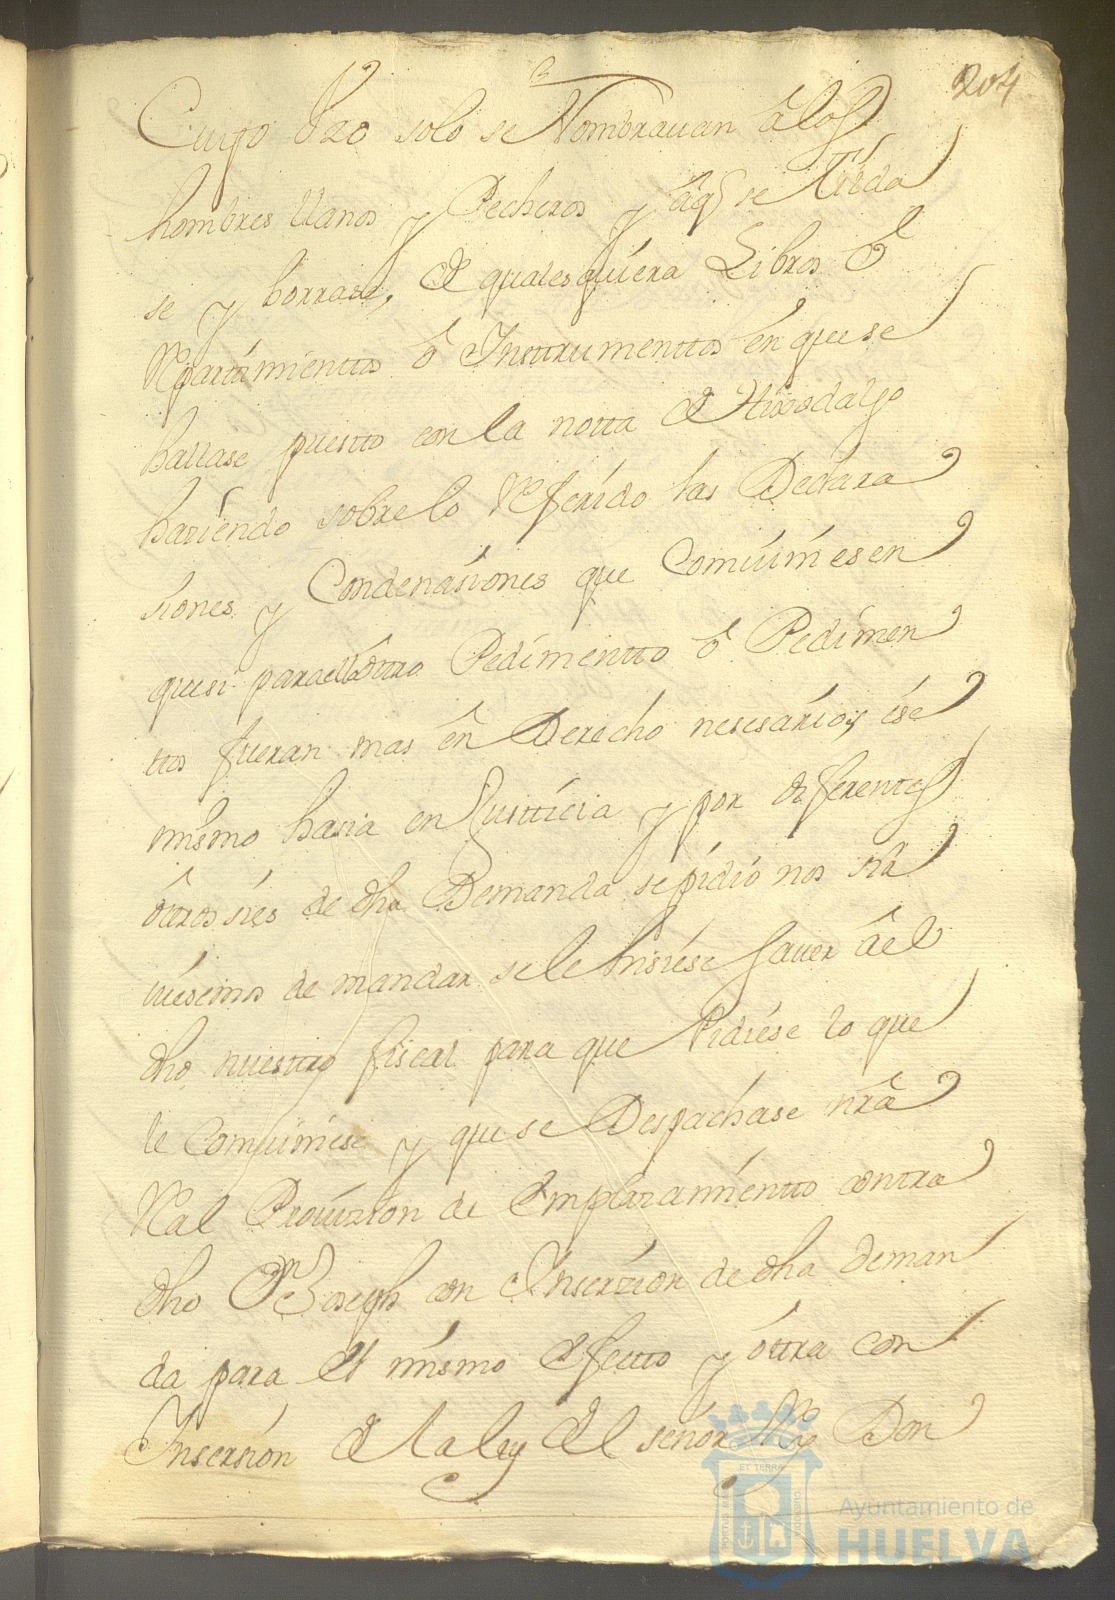 204
Cuyo Vzo solo se Nombrauan â los
hombres llanos y Pecheros y âq̃ se tilda
se y borrase, de qualesquiera Libros ô
Repartimienttos ô Instrumenttos en que se
hallase puestto con la notta de Hixodalgo
haziendo sobre lo Referido las Declara
siones y Condenásiones que Comúimiesen
que si para ello ôttro Pedimentto ô Pedimen
ttos fueran mas ên Derecho nesesario, y ese
mismo hasia en Justticia y por diferentes
ôttrosies de dha Demanda se pidió nos sir
uiésemos de mandar se le hisiése sauer âel
dho nuesttro fiscal para que Pidiése lo que
le Comuimiese y que se Despachase nrâ
Real Prouizion de Emplazamientto contra
dho Dn Joseph con Inserzion de dha deman
da para el mismo Efectto y ôttra con
Insersion de la ley del señor Rey Don
Ayuntamiento de
HUELVA